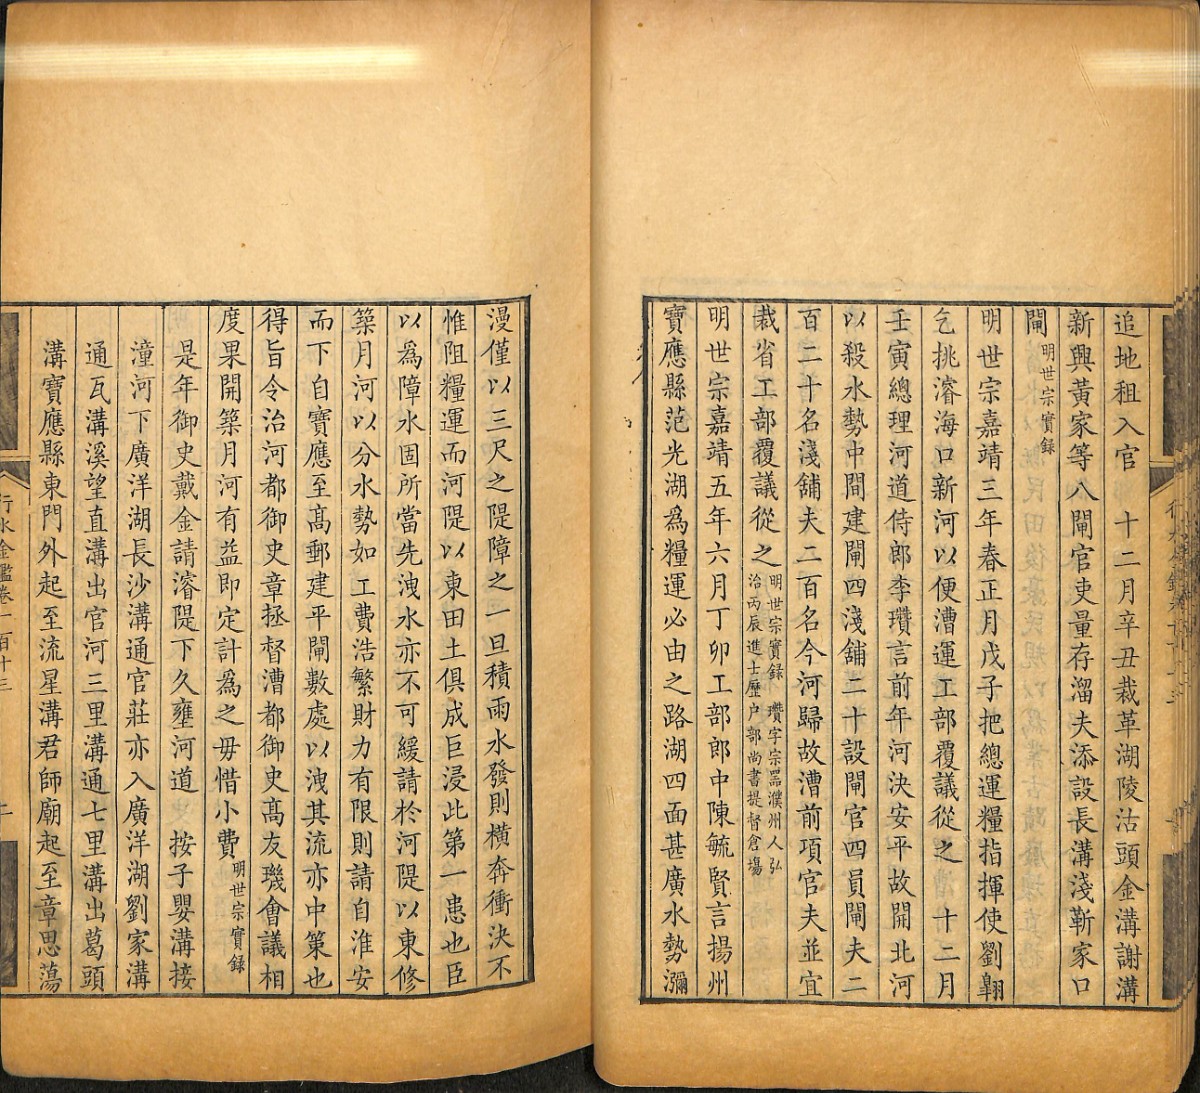 追地租入官　十二月辛丑裁革湖陵沽頭金溝謝溝
新興黃家等八閘官吏量存溜夫添設長溝淺靳家口
閘明世宗實錄
明世宗嘉靖三年春正月戊子把總運糧指揮使劉翺
乞挑濬海口新河以便漕運工部覆議從之　十二月
壬寅總理河道侍郎李瓚言前年河決安平故開北河
以殺水勢中間建閘四淺舖二十設閘官四員閘夫二
百二十名淺舖夫二百名今河歸故漕前項官夫並宜
裁省工部覆議從之明世宗實錄　瓚字宗器濮州人弘
治丙辰進士歷户部尚書提督倉塲
明世宗嘉靖五年六月丁卯工部郎中陳毓賢言揚州
寶應縣范光湖為糧運必由之路湖四面甚廣水勢瀰
漫僅以三尺之隄障之一旦積雨水發則橫奔衝決不
惟阻糧運而河隄以東田土俱成巨浸此第一患也臣
以為障水固所當先洩水亦不可緩請於河隄以東修
築月河以分水勢如工費浩繁財力有限則請自淮安
而下自寶應至高郵建平閘數處以洩其流亦中策也
得旨令治河都御史章拯督漕都御史高友璣會議相
度果開築月河有益即定計為之毋惜小費明世宗實錄
是年御史戴金請濬隄下久壅河道　按子嬰溝接
潼河下廣洋湖長沙溝通官莊亦入廣洋湖劉家溝
通瓦溝溪望直溝出官河三里溝通七里溝出葛頭
溝寶應縣東門外起至流星溝君師廟起至章思蕩
行水金鑑卷一百十三